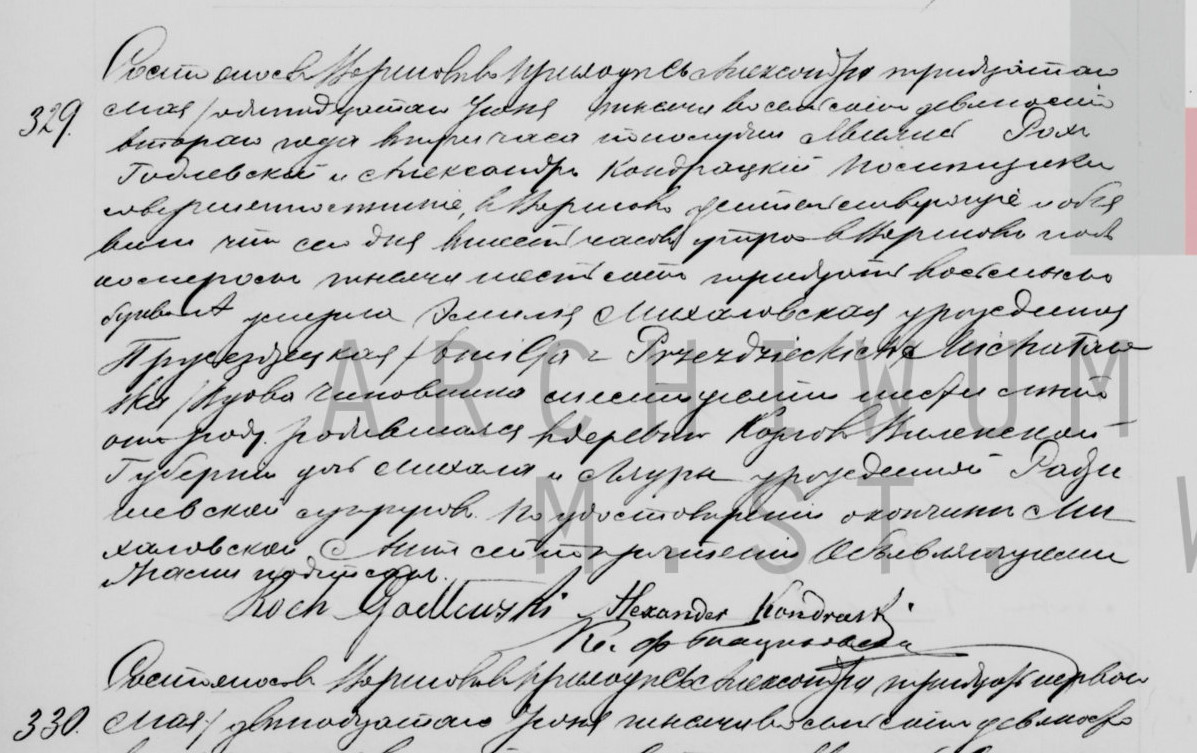 Состоялось въ Варшавѣ въ приходѣ Св. Александра тридцатаго
329. мая / одиннадцатаго Іюня тысяча восемьсотъ девяносто
втораго года въ три часа пополудни Явились Рохъ
Годлевскій и Александръ Кондрацкій
совершеннолѣтніе, въ Варшавѣ жительствующіе и объя
вили что сего дня въ шесть часовъ утра въ Варшавѣ подъ
номеромъ тысяча шестьсотъ тридцать восьмымъ
буква А умерла Эмилія Михаловская урожденная
Пржездзецкая / Emilja z Przezdzieckich Michałow
ska / вдова чиновника шестидесяти лѣтъ
отъ роду родившаяся въ деревнѣ Виленской
Губерніи дочь Михала и Лауры урожденной Ради
шевской супруговъ. По удостовѣреніи о кончинѣ Ми
халовской, Актъ сей по прочтеніи Объявляющими
и Нами подписанъ.
Roch Godlewski Alexander Kondracki
Кс. Ф.
Состоялось въ Варшавѣ въ приходѣ Св. Александра тридцать перваго
330. мая / двѣнадцатаго Іюня тысяча восемьсотъ девяносто
ARCHIWUM
M.ST. W